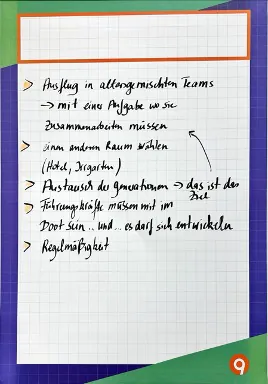 Ausflug in altersgemischten Teams
→ mit einer Aufgabe wo sie
zusammenarbeiten müssen
einen anderen Raum wählen
(Hotel, Irrgarten)
Austausch der generationen → das ist das
Ziel
Führungskräfte müssen mit im
Boot sein .. und .. es darf sich entwickeln
Regelmäßigkeit
9